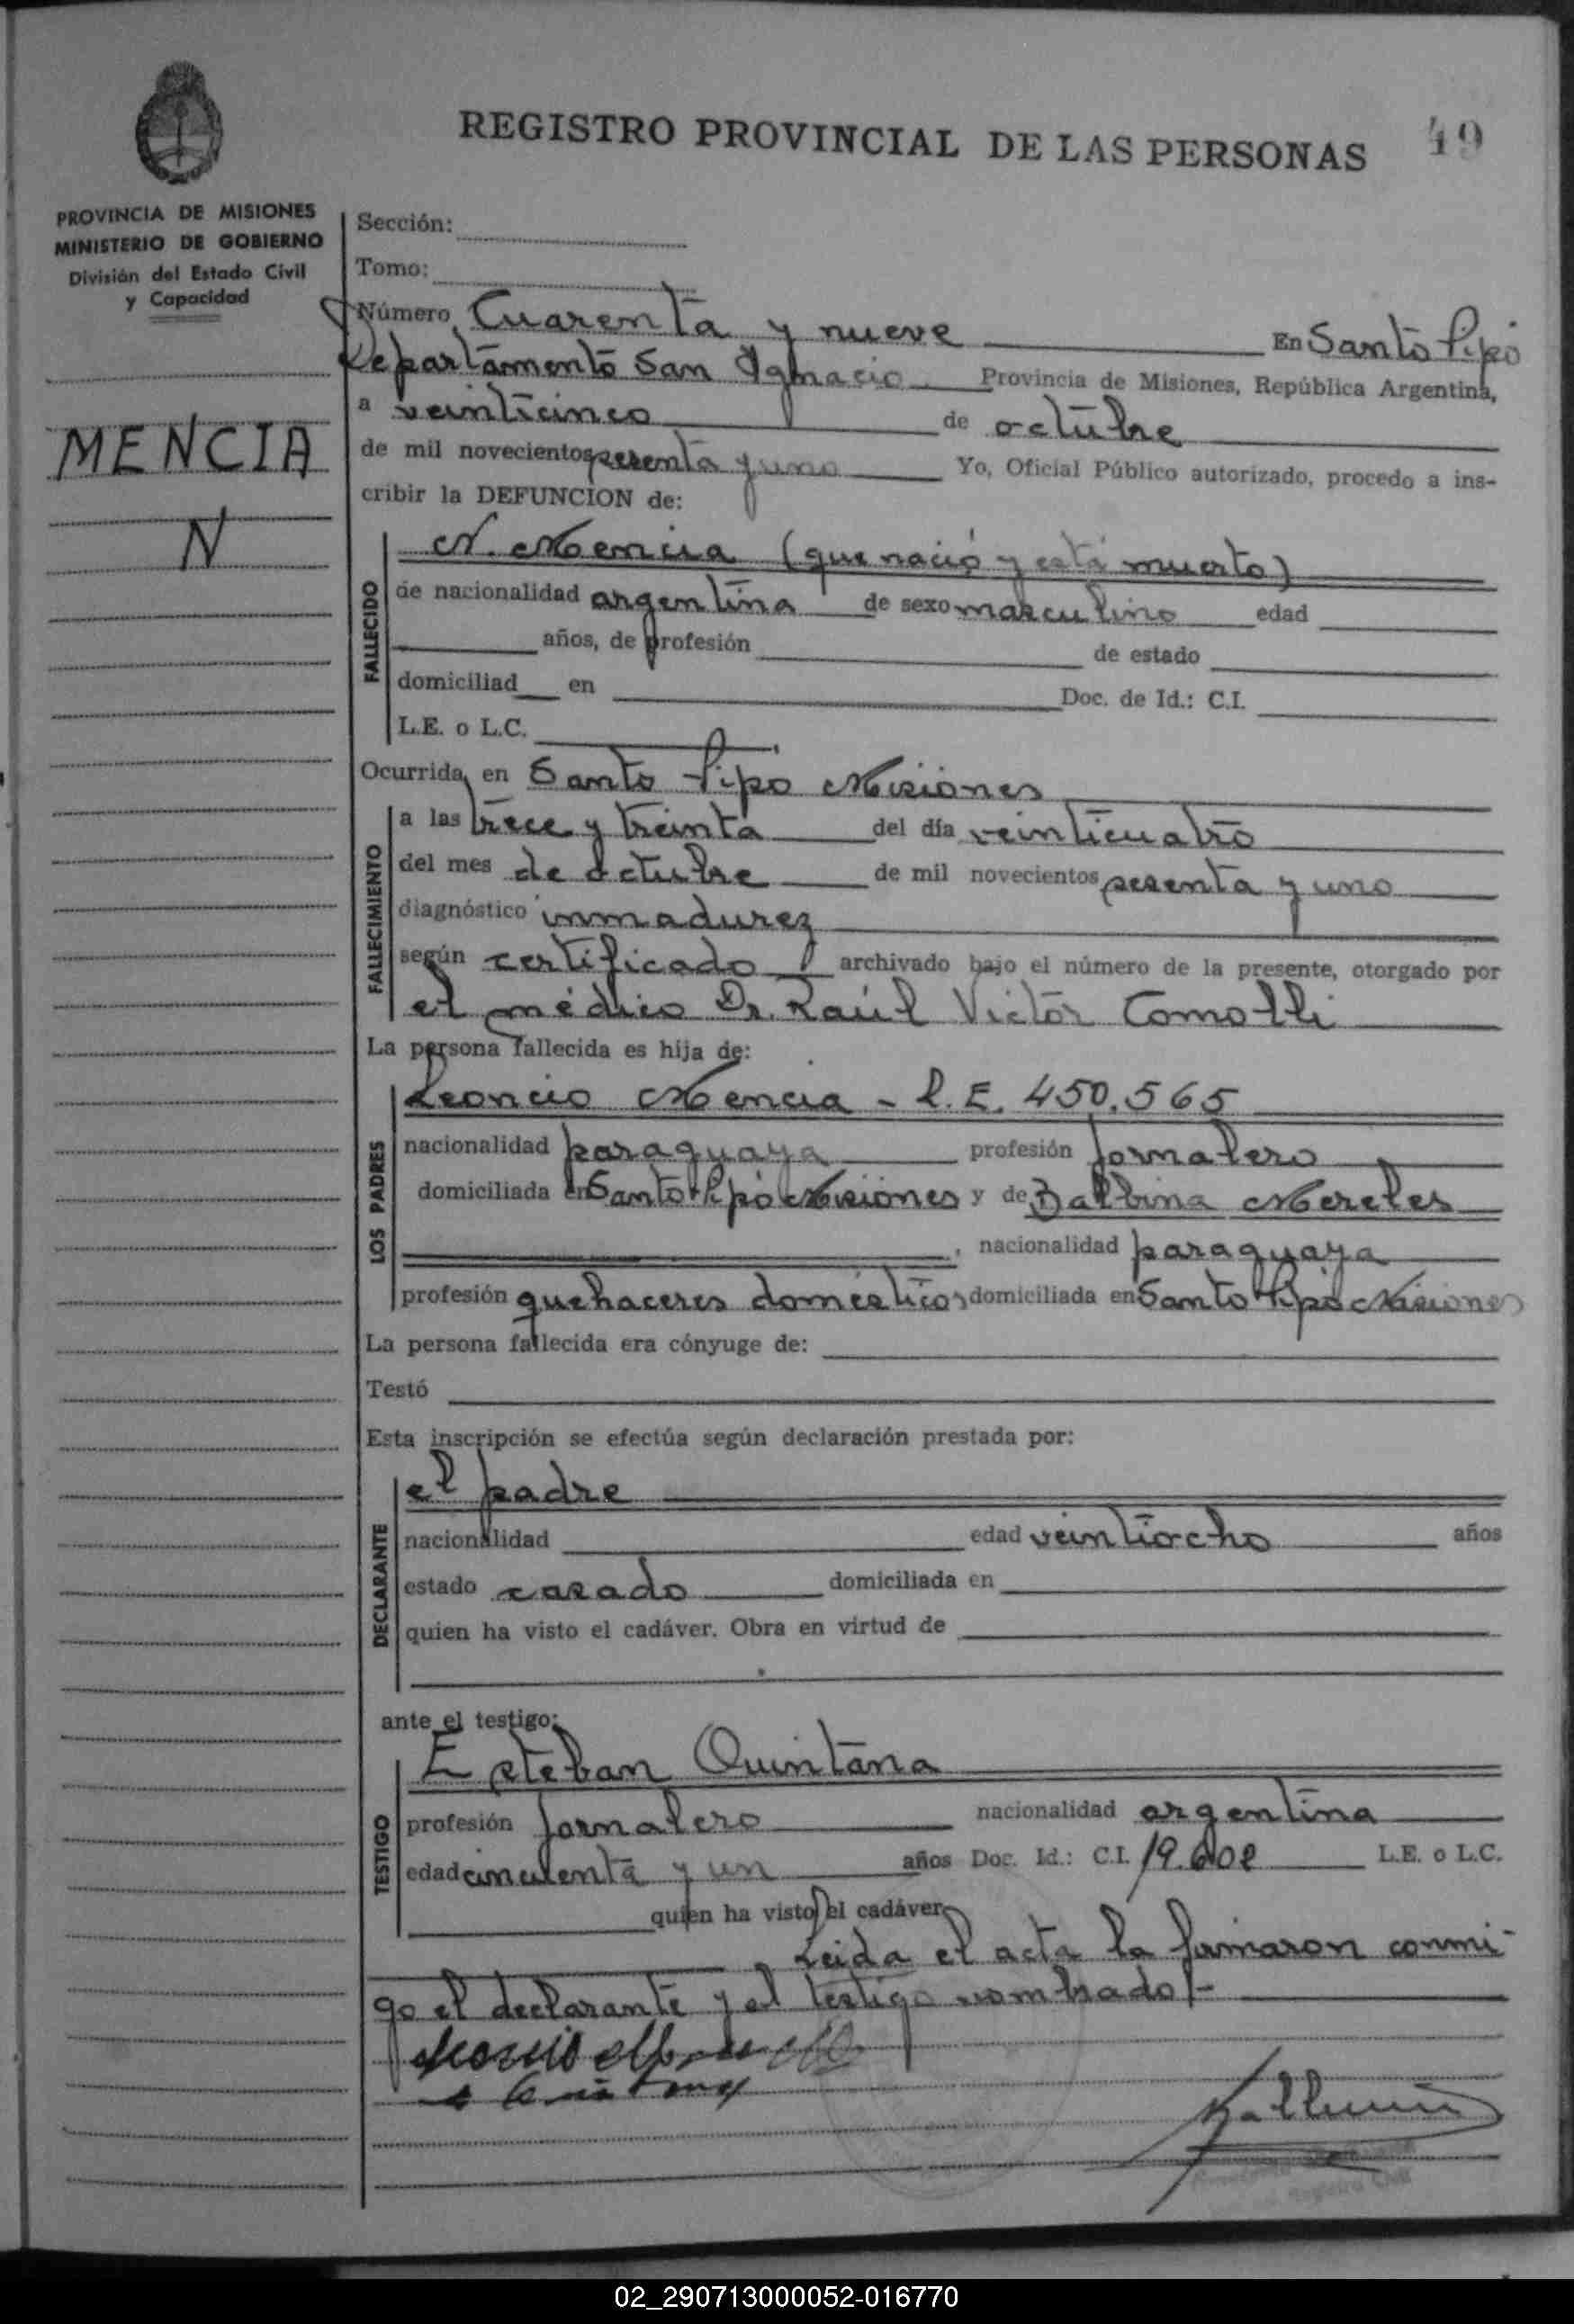 REGISTRO PROVINCIAL DE LAS PERSONAS 49
PROVINCIA DE MISIONES
MINISTERIO DE GOBIERNO
División del Estado Civil
y Capacidad
MENCIA
N
Sección:
Tomo:
Número Cuarenta y nueve En Santo Pipó
Departamento San Ignacio Provincia de Misiones, República Argentina,
a veinticinco de octubre
de mil novecientos sesenta y uno Yo, Oficial Público autorizado, procedo a ins-
cribir la DEFUNCION de:
FALLECIDO
N. Mencia (que nació y está muerto)
de nacionalidad argentina de sexo masculino edad
años, de profesión de estado
domiciliad en Doc. de Id.: C.I.
L.E. o L.C.
Ocurrida en Santo Pipo Misiones
FALLECIMIENTO
a las trece y treinta del día veinticuatro
del mes de octubre de mil novecientos sesenta y uno
diagnóstico inmadurez
según certificado archivado bajo el número de la presente, otorgado por
el médico Dr. Raúl Victor Comolli
La persona fallecida es hija de:
LOS PADRES
Leoncio Mencia - L.E. 450.565
nacionalidad paraguaya profesión jornalero
domiciliada en Santo Pipó Misiones y de Balbina Mereles
, nacionalidad paraguaya
profesión quehaceres domésticos domiciliada en Santo Pipó Misiones
La persona fallecida era cónyuge de:
Testó
Esta inscripción se efectúa según declaración prestada por:
DECLARANTE
el padre
nacionalidad edad veintiocho años
estado casado domiciliada en
quien ha visto el cadáver. Obra en virtud de
ante el testigo:
TESTIGO
Esteban Quintana
profesión jornalero nacionalidad argentina
edad cincuenta y un años Doc. Id.: C.I. 19.602 L.E. o L.C.
quien ha visto el cadáver
Leida el acta la firmaron conmi-
go el declarante y el testigo nombrado.-
02_290713000052-016770